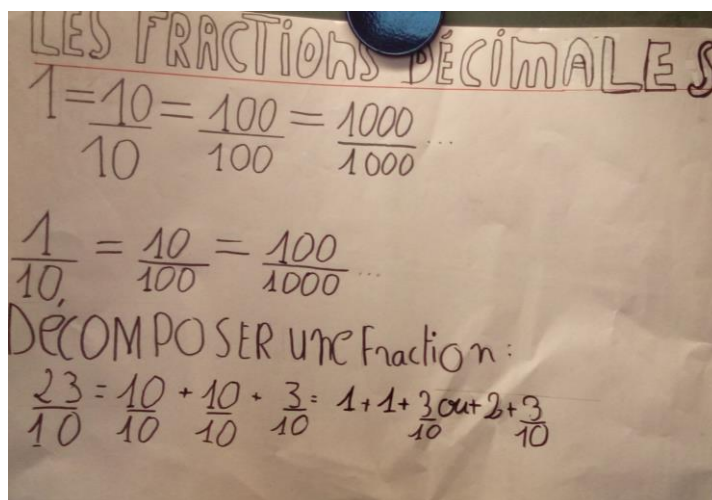 LES FRACTIONS DÉCIMALES
1 = 10/10 = 100/100 = 1000/1000 ...
1/10 = 10/100 = 100/1000 ...
DÉCOMPOSER une Fraction :
23/10 = 10/10 + 10/10 + 3/10 = 1 + 1 + 3/10 ou + 2 + 3/10